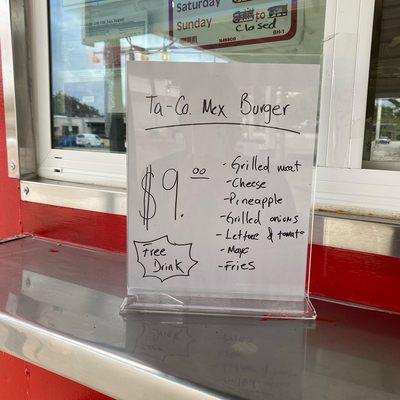 Saturday
Sunday to
Closed
Ta-Co. Mex Burger
$9.00
- Grilled meat
- Cheese
- Pineapple
- Grilled onions
- Lettuce & tomato
- Mayo
- Fries
Free
Drink